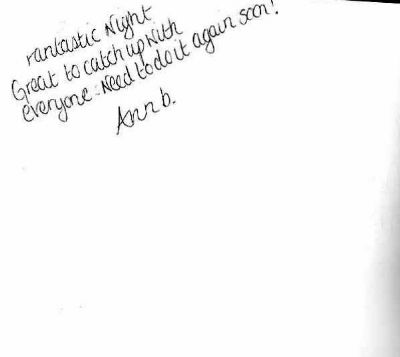 Fantastic Night
Great to catch up With
everyone - Need to do it again soon!
Ann b.